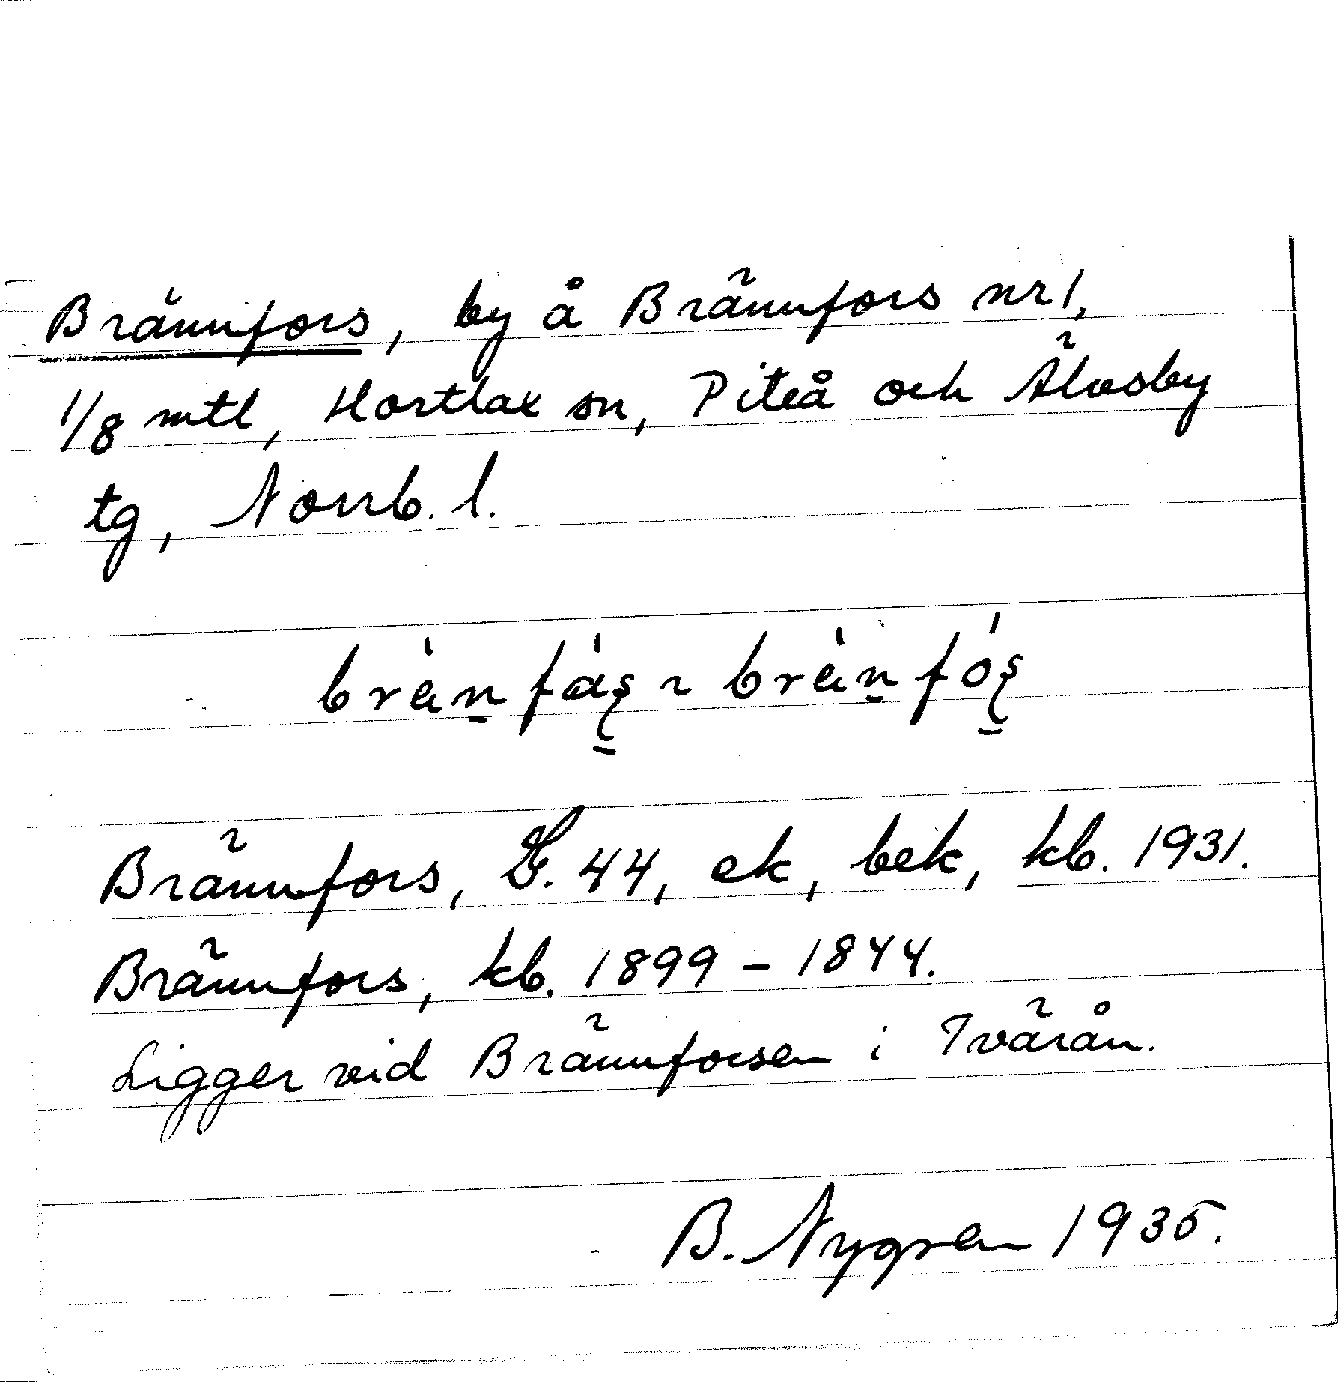 Brännfors, by å Brännfors nr 1,
1/8 mtl, Hortlax sn, Piteå och Älvsby
tg, Norrb. l.
brä̀n̠fás̠ ~ brä̀n̠fós̠
Brännfors, G. 44, ek, bek, kb. 1931.
Brännfors, kb. 1899 – 1844.
Ligger vid Brännforsen i Tvärån.
B. Nygren 1935.